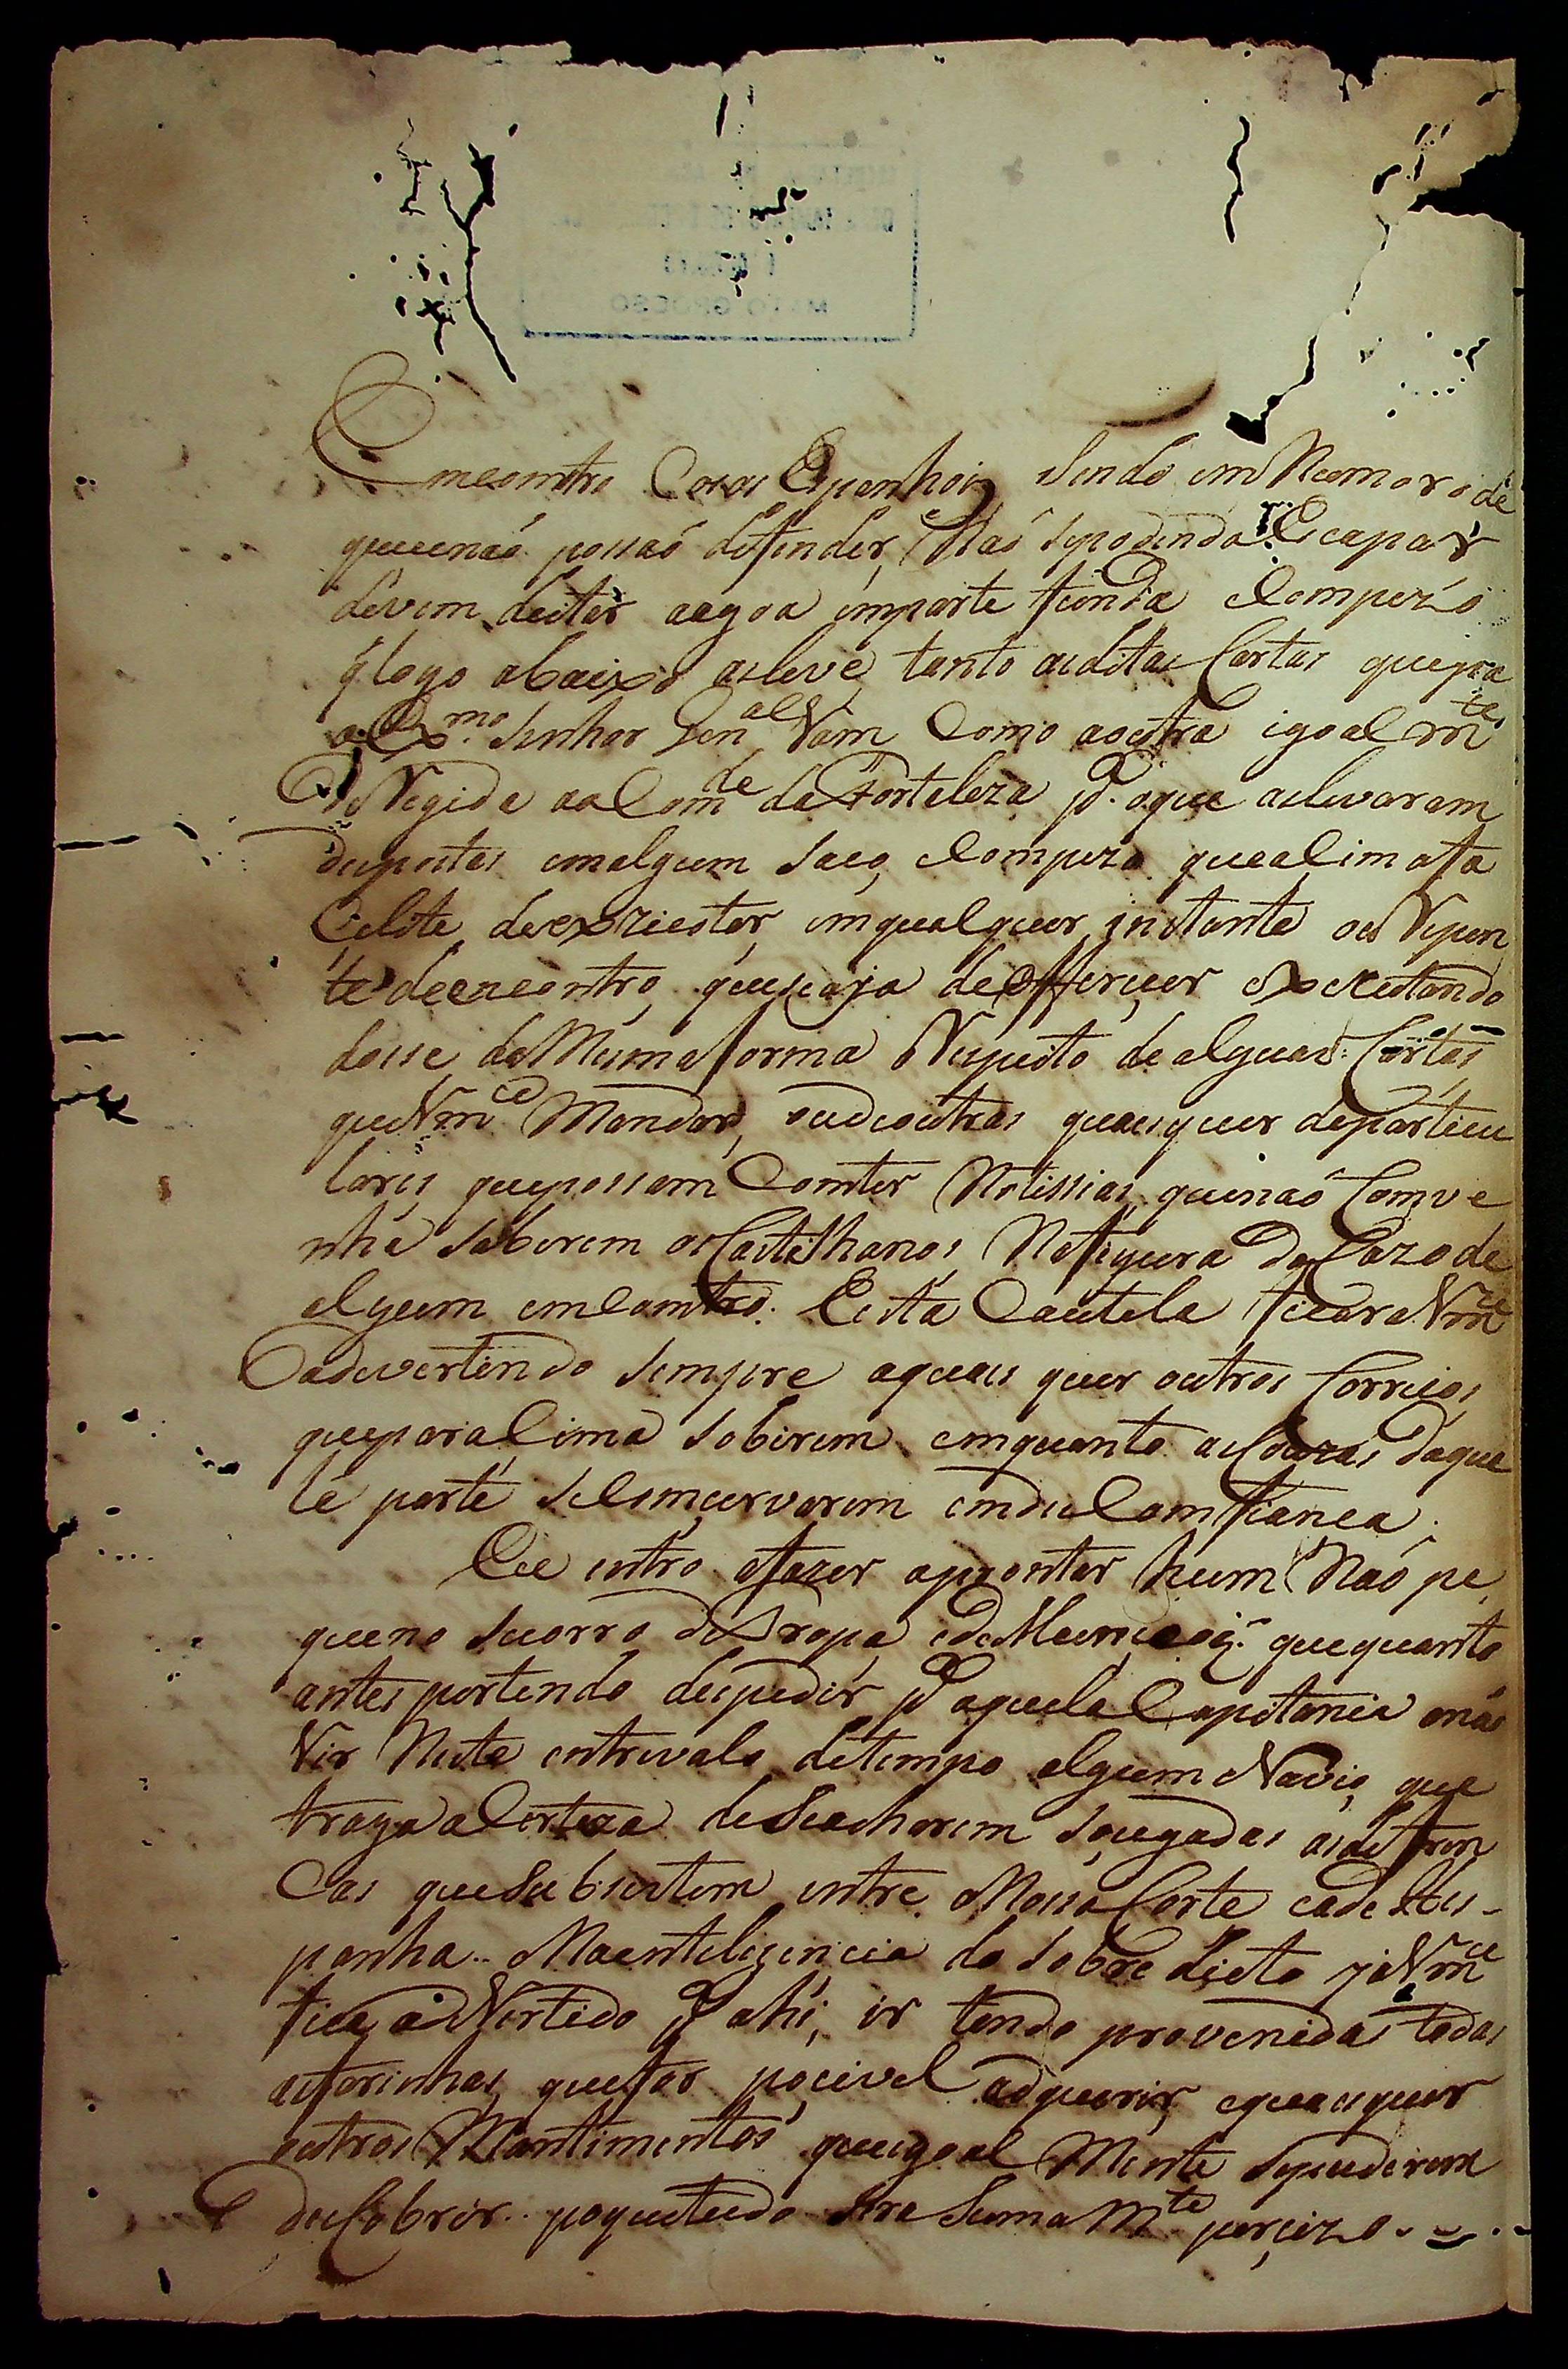 Emcomtro Coros Espanhois, Sendo em Numoro de
que enaó possaó defender, e Naó sepodendo Escapar
devem deitar aagoa emparte funda Com pezo
q̃ logo abaixo as leve, tanto as ditas Cartas que pra
o Ex.mo Senhor Gen.al Vam Como aoutra igoalm.te
deregida ao Com.de da Fortaleza p.a oque as levaram
despostas em algum Saco, Com pezo que alim afa
Celite de exziestar em qualquer instante ou Repen
te de encontro, que seaja de Ofereçer exzecutando
dosse da Mesma forma Respeito de alguas Cartas
que Vm.ce Mandar, ou de outras quaes quer departicu
lares, que possam Comter Notissias, que naó Comve
nhá Saberem os Castelhanos, Nafigura do Cazo de
algum emComtro. Esta Cautela ficara Vm.ce
adevertindo Sempre aquaes quer outros Correios
que para Sima Sobirem emquanto as Couzas daque
la parte se Comçervarem em desComfianca.
Eu entro afazer apromtar hum Naó pe
queno Socorro de Tropa, e de Muniçois que quanto
antes pertendo despedir p.a aquela Capitania enaó
Vir Neste entrevalo de tempo algum Navio, que
traga aCerteza de Se acharem Soçegadas as defren
Cas que Subzistem entre Nossa Corte eade Hes-
panha.. Na enteligencia do Sobre dicto já Vm.ce
fica adVertido p.a ahi, ir tendo provenidas todas
as farinhas, que for poçivel adquerir, equaes quer
outros Mantimentos que igoal Mente sepuderem
desCobrir.. poque tudo Sera Suma M.te perçizo